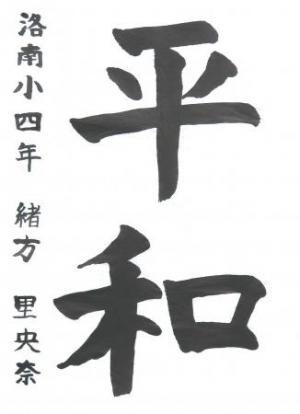 平和
洛南小四年 緒方 里央奈